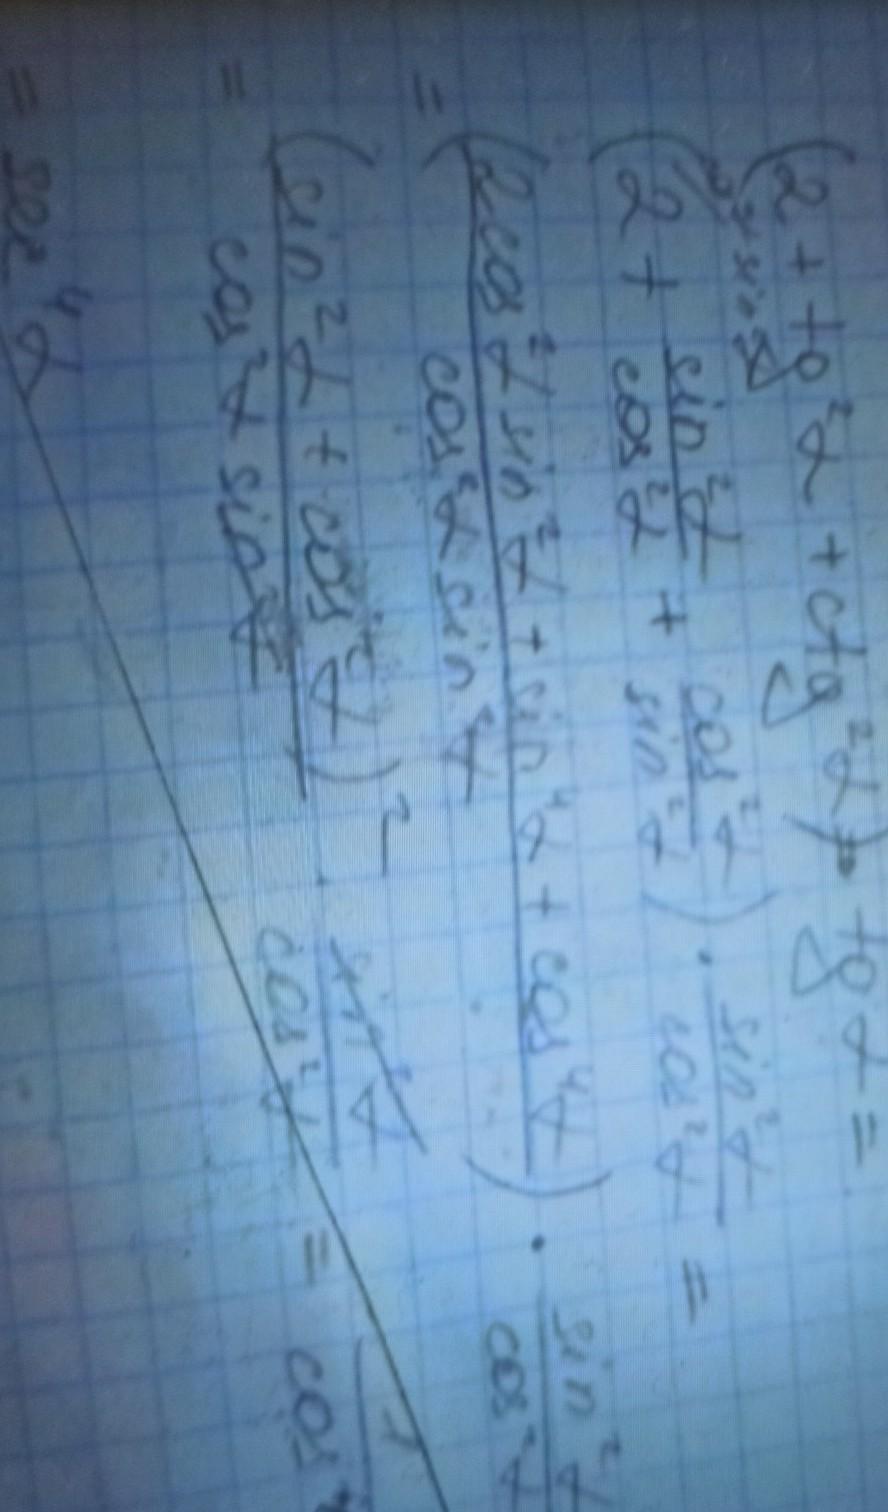 (2 + tg²α + ctg²α) · tg α =
(2 + sin²α/cos²α + cos²α/sin²α) · sin²α/cos²α =
= (2cos²α sin²α + sin⁴α + cos⁴α)/(cos²α sin²α) · sin²α/cos²α
= (sin²α + cos²α)²/(cos²α sin²α) sin²α/cos²α = 1/cos⁴
= sec⁴α